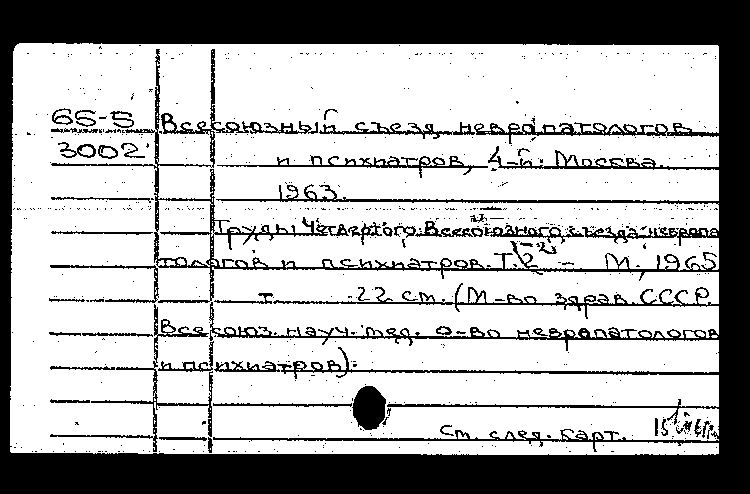 65-5 Всесоюзный съезд невропатологов
3002 и психиатров, 4-й. Москва.
1963.
Труды Четвертого Всесоюзного съезда невропа
тологов и психиатров. Т. 2 – М., 1965
т. 22 см. (М-во здрав. СССР.
Всесоюз. науч. мед. о-во невропатологов
и психиатров).
См. след. карт.